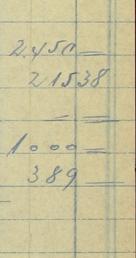 2.450 =
21538
- =
1000 =
389 =